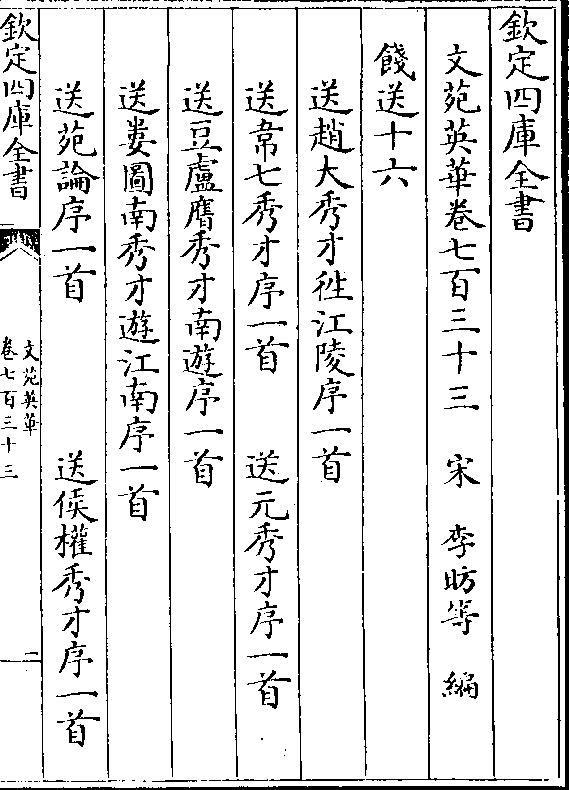 欽定四庫全書
文苑英華卷七百三十三 宋 李昉等 編
餞送十六
送趙大秀才徃江陵序一首
送韋七秀才序一首 送元秀才序一首
送豆盧膺秀才南遊序一首
送婁圖南秀才遊江南序一首
送苑論序一首 送侯權秀才序一首
欽定四庫全書
文苑英華
卷七百三十三